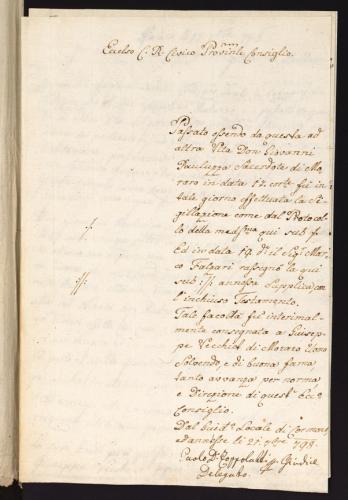 Eccelso C. R. Civico Provin.le Consiglio.
Passato essendo da questa ad
altra Vita Don Giovanni
Sacerdote di Mo
raro in data 17. corr.te fù in
tale giorno effettuata la Si
gillazione come dal Protocol
lo della med.ma qui sub
Ed in data 19. d.o il Sig.r Mar
co rassegnò la qui
sub annessa Supplica, con
l'inchiuso Testamento.
Tale facoltà fù interinal
mente consegnata a Giusep
pe Vecchiet di Moraro Uomo
Solvendo, e di buona fama,
tanto avvanza per norma
e Direzione di quest' Ecc.o
Consiglio.
Dal Giud.o Locale di Cormons
li 21. 798.
Paolo D. Giudice
Delegato.